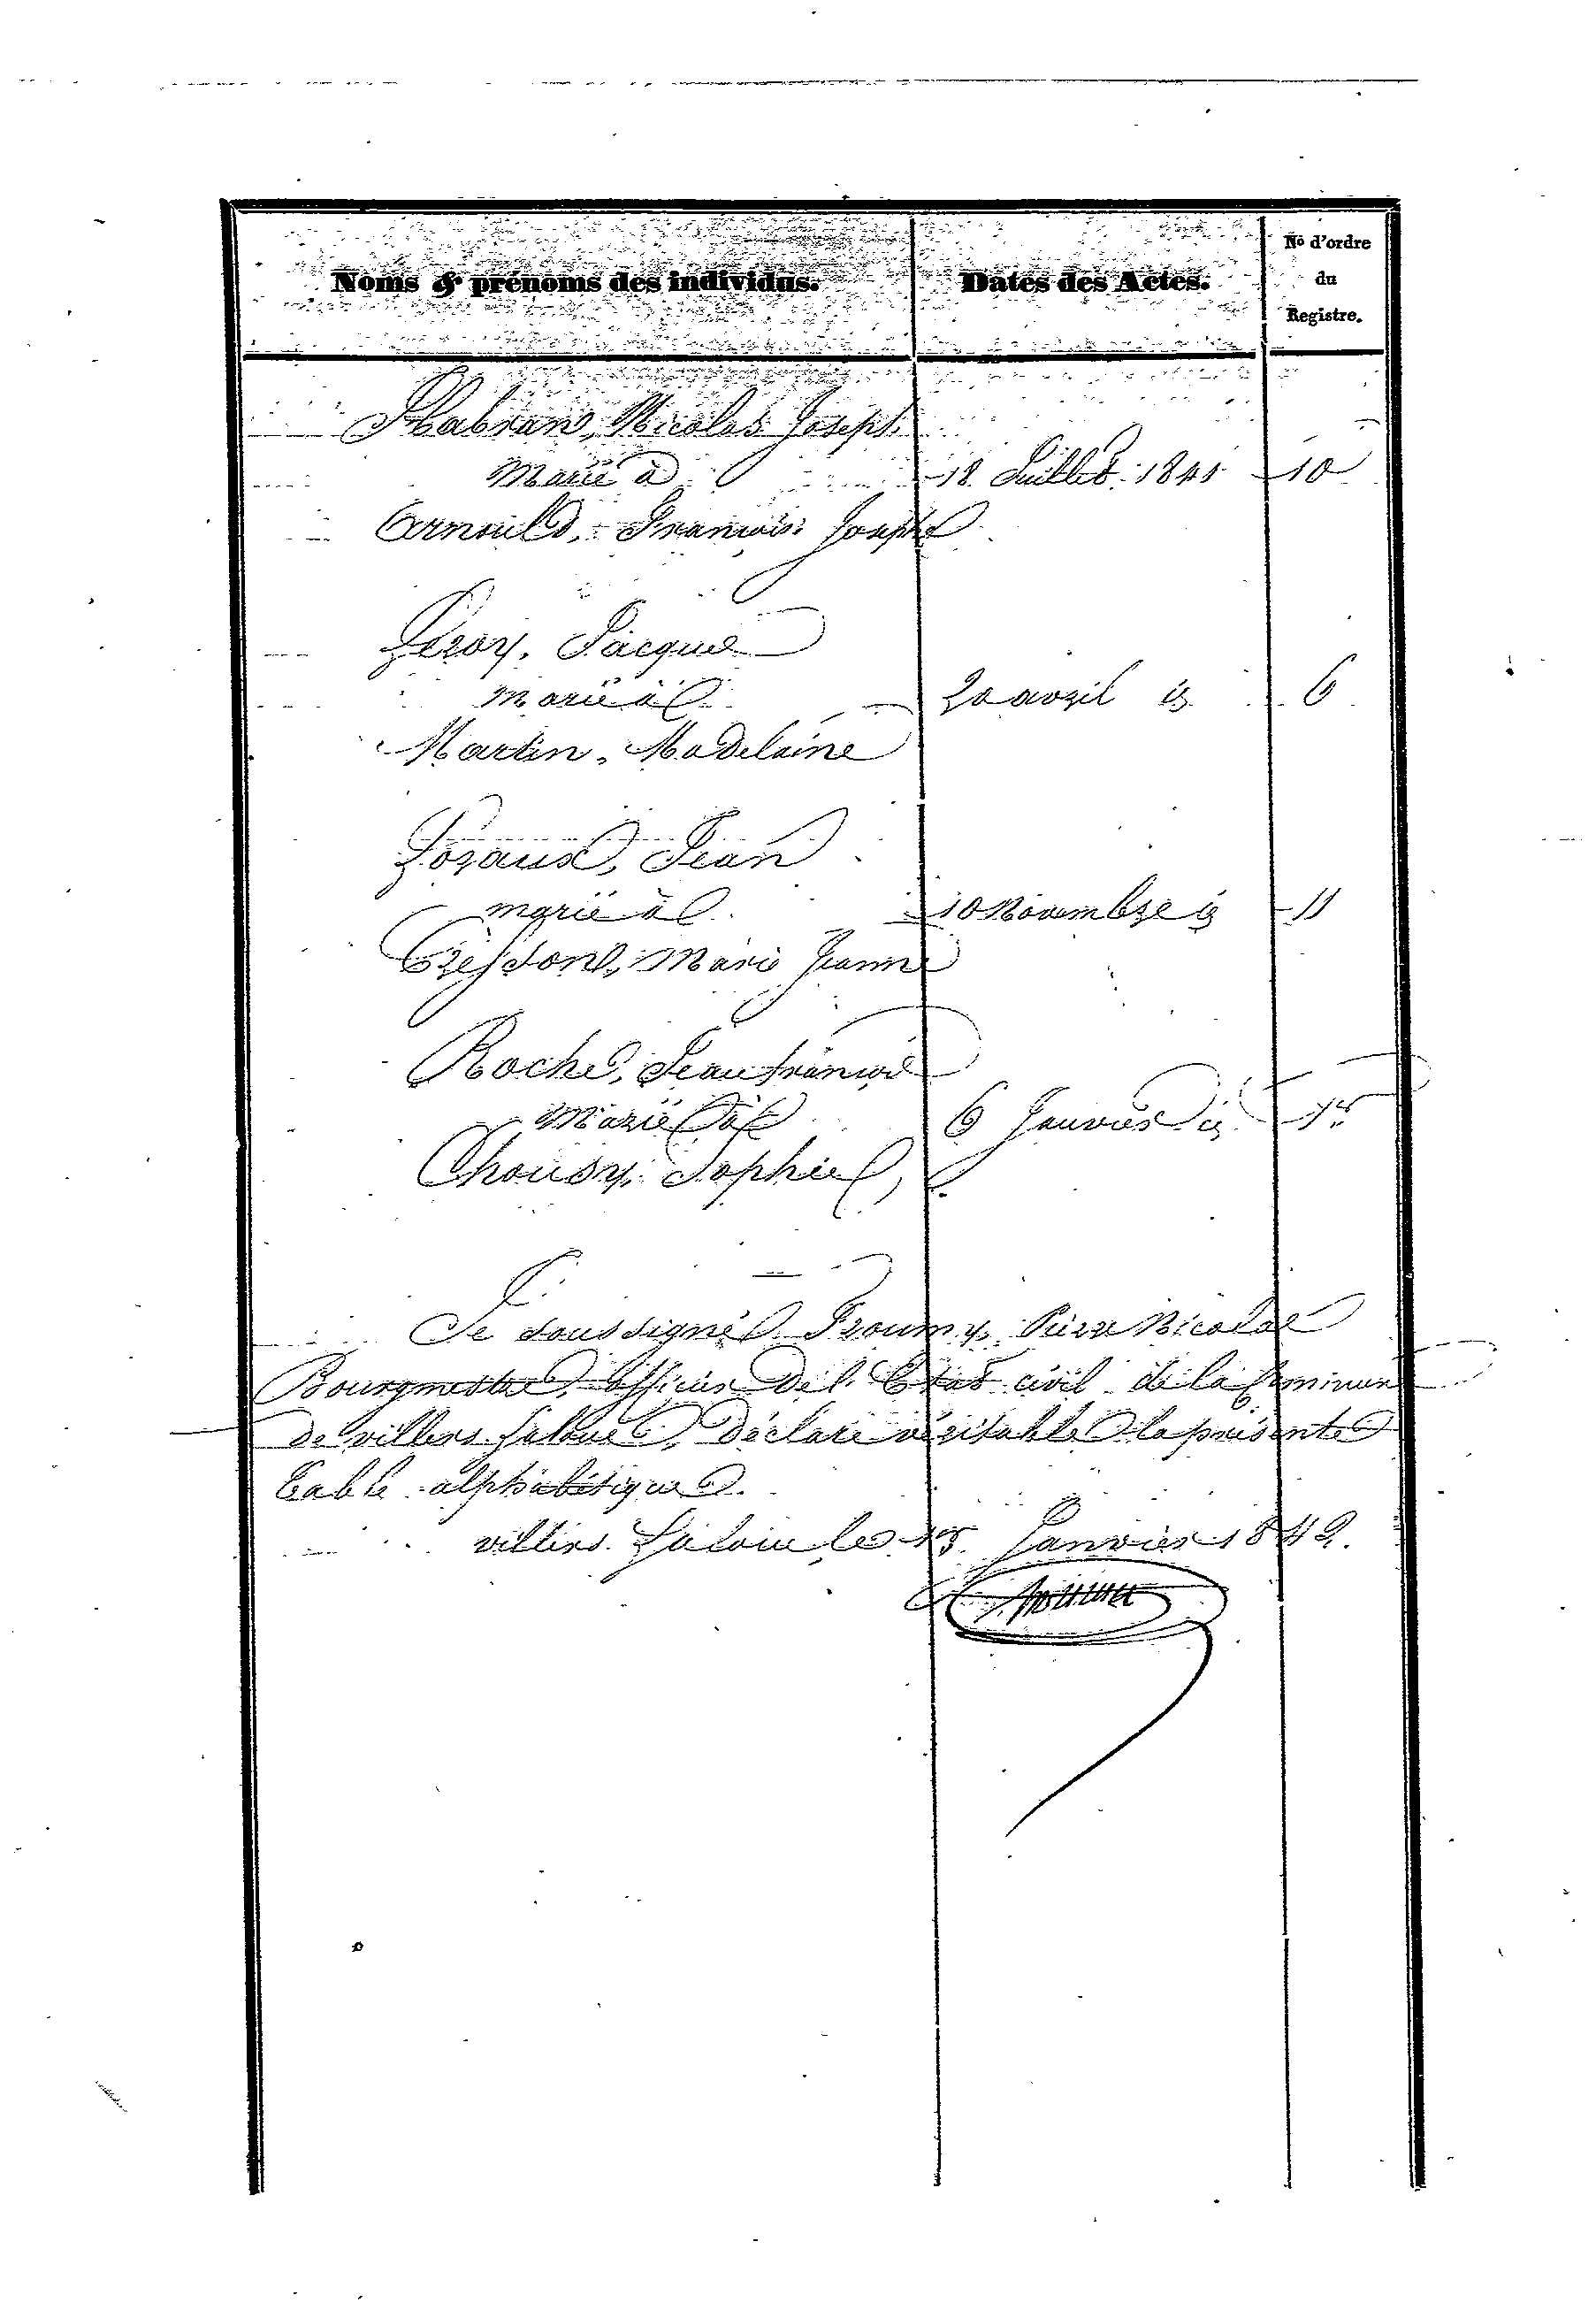 Noms & prénoms des individus. Dates des Actes. No d'ordre du Registre.
Habran, Nicolas Joseph
Marié à 18 Juillet 1841 10
Arnould, François Joseph
Leroy, Jacque
Marié à 20 avril id 6
Martin, Madelaine
Lozaux, Jean
marié à 10 Novembre id 11
Marie Jeanne
Roche, Jean françois
Marié à 6 Janvier id 1er
Sophie
Je soussigné Pierre Nicolas
Bourgmestre, officier de l'Etat civil de la Commune
de villers la loue, déclare véritable la présente
table alphabétique
villers la loue le 15 Janvier 1842